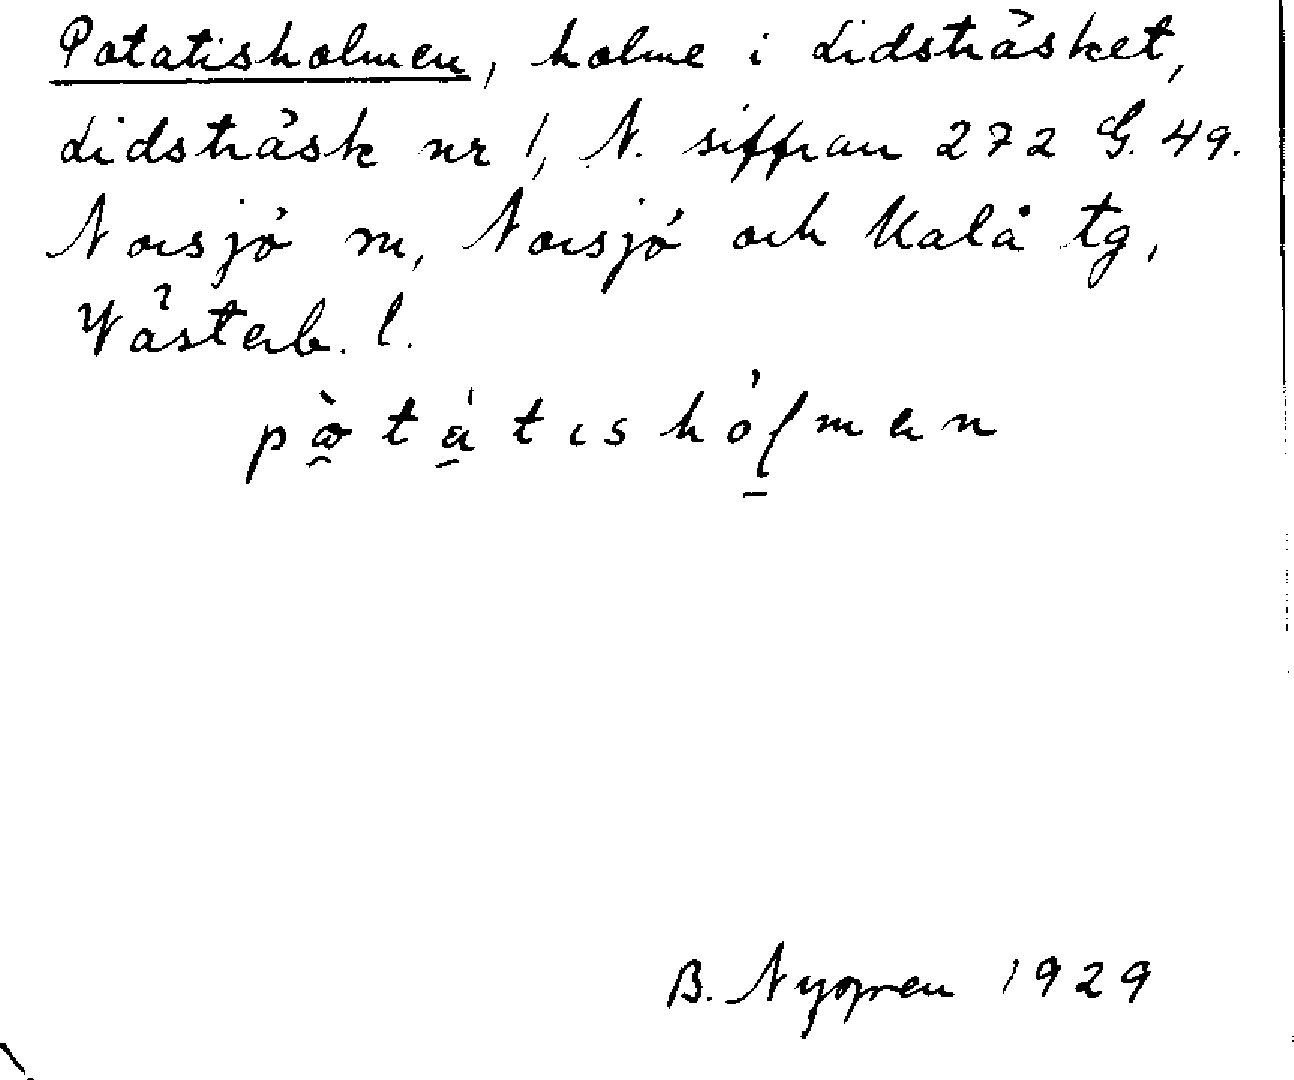 Potatisholmen, holme i Lidsträsket,
Lidsträsk nr 1, N. siffran 272 G. 49.
Norsjö sn, Norsjö och Malå tg,
Västerb. l.
B. Nygren 1929